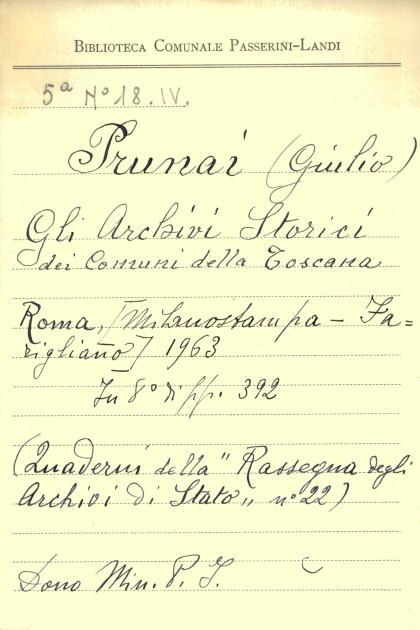 BIBLIOTECA COMUNALE PASSERINI-LANDI
5ª Nº 18. IV.
Prunai (Giulio)
Gli Archivi Storici
dei Comuni della Toscana
Roma, [Milanostampa - Fa=
rigliano] 1963
In 8° di pp. 392
(Quaderni della " Rassegna degli
Archivi di Stato „ nº 22)
Dono Min. P. I.